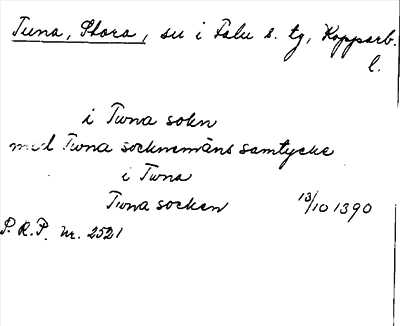 Tuna, Stora, sn i Falu s. tg, Kopparb.
l.
i Twna sokn
med Twna soknemäns samtycke
i Twna
Twna socken 13/10 1390
P.R.P. nr. 2521